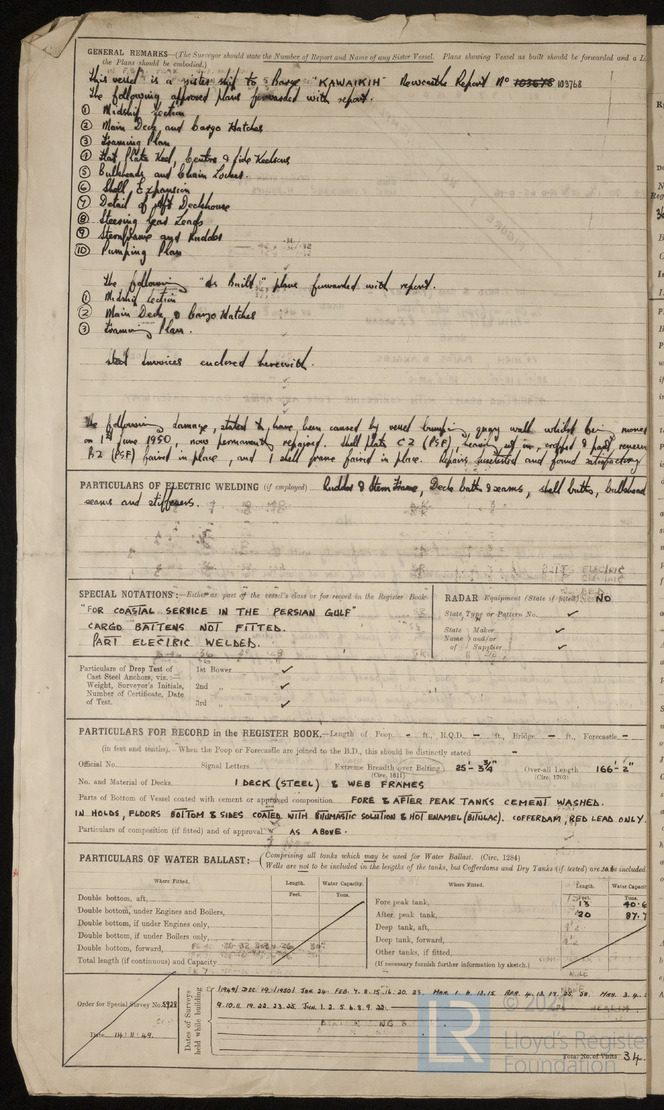 GENERAL REMARKS—(The Surveyor should state the Number of Report and Name of any Sister Vessel. Plans showing Vessel as built should be forwarded and a
the Plans should be embodied.)
This vessel is a sister ship to Barge "KAWAIKIH" Newcastle Report No 103678 103768
The following approved plans forwarded with report.
① Midship Section
② Main Deck and Cargo Hatches
③ Framing Plan
④ Flat Plate Keel, Centre & Side Keelsons
⑤ Bulkheads and Chain Locker.
⑥ Shell Expansion
⑦ Detail of Aft Deckhouse
⑧ Steering Gear Leads
⑨ Sternframe and Rudder
⑩ Pumping Plan
The following "As Built" plans forwarded with report.
① Midship Section
② Main Deck & Cargo Hatches
③ Framing Plan.
Steel Invoices enclosed herewith.
The following damage, stated to have been caused by vessel bumping quay wall whilst being moved
on 1st June 1950, now permanently repaired. Shell plate C2 (PSF), heavily set in, cropped & part
B2 (PSF) faired in place, and 1 shell frame faired in place. Repairs inspected and found satisfactory
PARTICULARS OF ELECTRIC WELDING (if employed) Rudder & Stern Frame, Deck butts & seams, shell butts, bulkhead
seams and stiffeners.
SPECIAL NOTATIONS:—Either as part of the vessel's class or for record in the Register Book
"FOR COASTAL SERVICE IN THE PERSIAN GULF"
CARGO BATTENS NOT FITTED.
PART ELECTRIC WELDED.
RADAR Equipment (State if fitted) NO
State Type or Pattern No. ✓
State Maker ✓
Name and/or
of Supplier ✓
Particulars of Drop Test of
Cast Steel Anchors, viz.:—
Weight, Surveyor's Initials,
Number of Certificate, Date
of Test.
1st Bower ✓
2nd „ ✓
3rd „ ✓
PARTICULARS FOR RECORD in the REGISTER BOOK.—Length of Poop - ft., R.Q.D. - ft., Bridge - ft., Forecastle -
(in feet and tenths).—When the Poop or Forecastle are joined to the B.D., this should be distinctly stated -
Official No. Signal Letters Extreme Breadth (over Belting) 25'-3¾" Over-all Length 166'-2"
(Circ. 1611) (Circ. 1703)
No. and Material of Decks. 1 DECK (STEEL) & WEB FRAMES
Parts of Bottom of Vessel coated with cement or approved composition. FORE & AFTER PEAK TANKS CEMENT WASHED.
IN HOLDS, FLOORS BOTTOM & SIDES COATED WITH BITUMASTIC SOLUTION & HOT ENAMEL (BITULAC). COFFERDAM, RED LEAD ONLY.
Particulars of composition (if fitted) and of approval. AS ABOVE.
PARTICULARS OF WATER BALLAST:—(Comprising all tanks which may be used for Water Ballast. (Circ. 1284)
Wells are not to be included in the lengths of the tanks, but Cofferdams and Dry Tanks (if tested) are to be included
Where Fitted. Length. Water Capacity. Where Fitted. Length. Water
Feet. Tons. Feet. Tons.
Double bottom, aft, Fore peak tank, 13 40.6
Double bottom, under Engines and Boilers, After peak tank, 20 87.7
Double bottom, if under Engines only, Deep tank, aft,
Double bottom, if under Boilers only, Deep tank, forward,
Double bottom, forward, Other tanks, if fitted,
Total length (if continuous) and Capacity (If necessary furnish further information by sketch.)
Order for Special Survey No. 5928
Date 14.11.49.
Dates of Surveys
held while building
(1949) DEC. 19. (1950) JAN 24. FEB. 7. 8. 15. 16. 20. 23. MAR. 1. 6. 13. 15 APR. 4. 13. 17. 25. 28. MAY. 3. 4.
9. 10. 11. 19. 22. 23. 25. JUN. 1. 2. 5. 6. 8. 9. 22.
Total No. of Visits 34.
LR © 2021
Lloyd's Register
Foundation